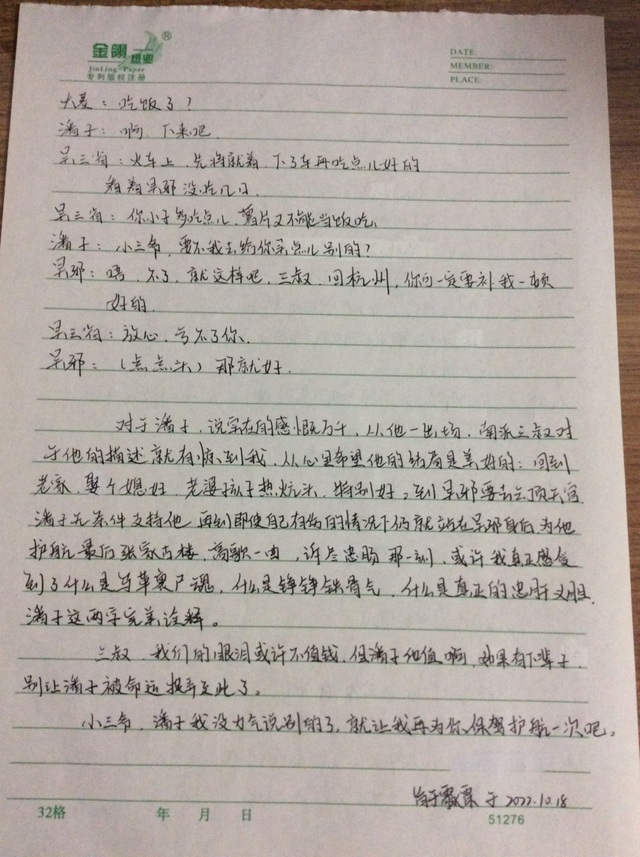 金翎纸业®
JinLing-Paper
专利版权注册
DATE:
MEMBER:
PLACE:
大圣：吃饭了？
潘子：啊，下来吧
吴三省：火车上，先将就着，下了车再吃点儿好的
看着吴邪没吃几口
吴三省：你小子多吃点儿，薯片又不能当饭吃
潘子：小三爷，要不我去给你买点儿别的？
吴邪：唔，不了，就这样吧，三叔，回杭州，你可一定要补我一顿
好的
吴三省：放心，亏不了你.
吴邪：（点点头）那就好.
对于潘子，说实在的感慨万千，从他一出场，南派三叔对
于他的描述就有惊到我，从心里希望他的结局是美好的：回到
老家，娶个媳妇，老婆孩子热炕头，特别好，到吴邪要去云顶天宫
潘子无条件支持他，再到即使自己有伤的情况下仍就站在吴邪身后为他
护航，最后张家古楼，高歌一曲，诉尽忠肠 那一刻，或许我真正感受
到了什么是马革裹尸魂，什么是铮铮铁骨气，什么是真正的忠肝义胆.
潘子这两字完美诠释。
三叔，我们的眼泪或许不值钱，但潘子他值啊，如果有下辈子，
别让潘子被命运捉弄至此了。
小三爷，潘子我没力气说别的了，就让我再为你保驾护航一次吧。
于 2022.10.18
32格
年 月 日
51276